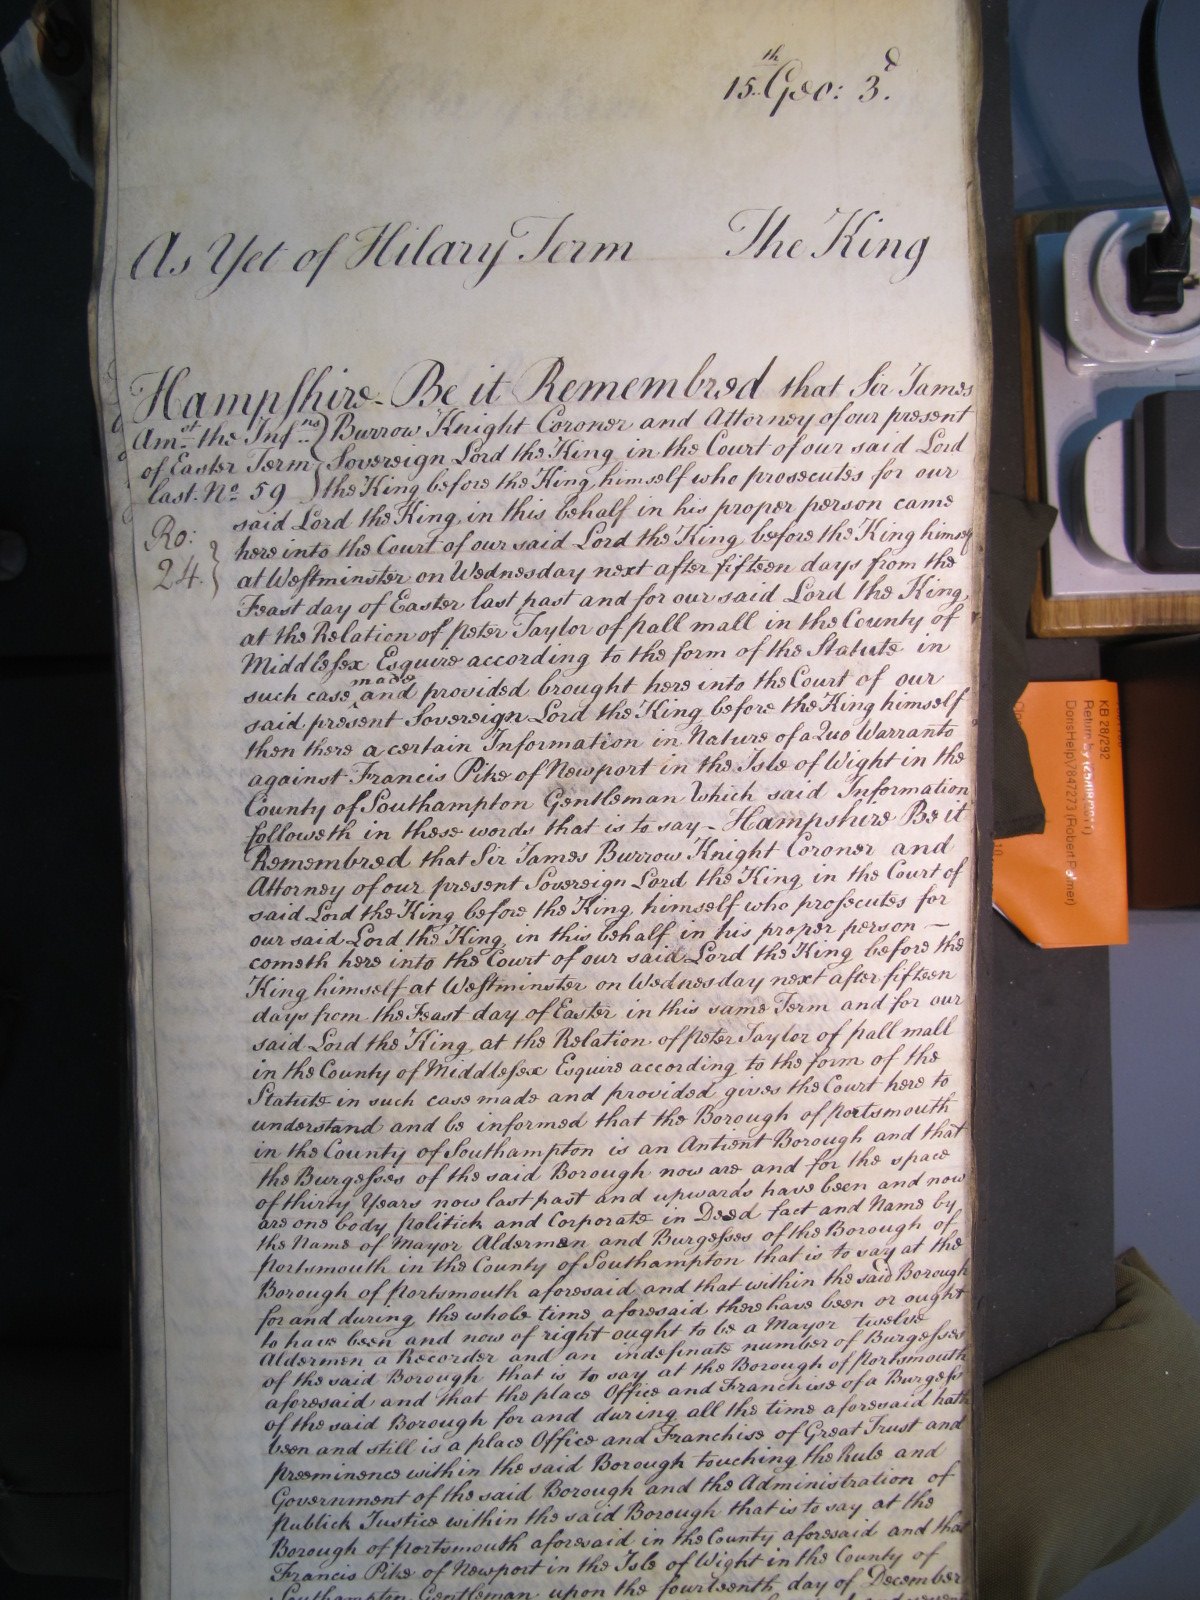 15.th Geo: 3.d
As Yet of Hilary Term The King
Hampshire. Be it Remembred that Sir James
Amst. the Infns. Burrow Knight Coroner and Attorney of our present
of Easter Term Sovereign Lord the King in the Court of our said Lord
last. No. 59 the King before the King himself who prosecutes for our
said Lord the King in this behalf in his proper person came
Ro: 24. here into the Court of our said Lord the King before the King himself
at Westminster on Wednesday next after fifteen days from the
Feast day of Easter last past and for our said Lord the King
at the Relation of Peter Taylor of pall mall in the County of
Middlesex Esquire according to the form of the Statute in
such case made and provided brought here into the Court of our
said present Sovereign Lord the King before the King himself
then there a certain Information in Nature of a Quo Warranto
against Francis Pike of Newport in the Isle of Wight in the
County of Southampton Gentleman Which said Information
followeth in these words that is to say - Hampshire Be it
Remembred that Sir James Burrow Knight Coroner and
Attorney of our present Sovereign Lord the King in the Court of
said Lord the King before the King himself who prosecutes for
our said Lord the King in this behalf in his proper person —
cometh here into the Court of our said Lord the King before the
King himself at Westminster on Wednesday next after fifteen
days from the Feast day of Easter in this same Term and for our
said Lord the King at the Relation of Peter Taylor of pall mall
in the County of Middlesex Esquire according to the form of the
Statute in such case made and provided gives the Court here to
understand and be informed that the Borough of Portsmouth
in the County of Southampton is an Antient Borough and that
the Burgesses of the said Borough now are and for the space
of thirty Years now last past and upwards have been and now
are one body Politick and Corporate in Deed fact and Name by
the Name of Mayor Aldermen and Burgesses of the Borough of
Portsmouth in the County of Southampton that is to say at the
Borough of Portsmouth aforesaid and that within the said Borough
for and during the whole time aforesaid there have been or ought
to have been and now of right ought to be a Mayor twelve
Aldermen a Recorder and an indefinate number of Burgesses
of the said Borough that is to say at the Borough of Portsmouth
aforesaid and that the place Office and Franchise of a Burgess
of the said Borough for and during all the time aforesaid hath
been and still is a place Office and Franchise of Great Trust and
preeminence within the said Borough touching the Rule and
Government of the said Borough and the Administration of
Publick Justice within the said Borough that is to say at the
Borough of Portsmouth aforesaid in the County aforesaid and that
Francis Pike of Newport in the Isle of Wight in the County of
Southampton Gentleman upon the fourteenth day of December
KB 28/292
Return by
DorisHelp(7847273 (Robert Palmer)